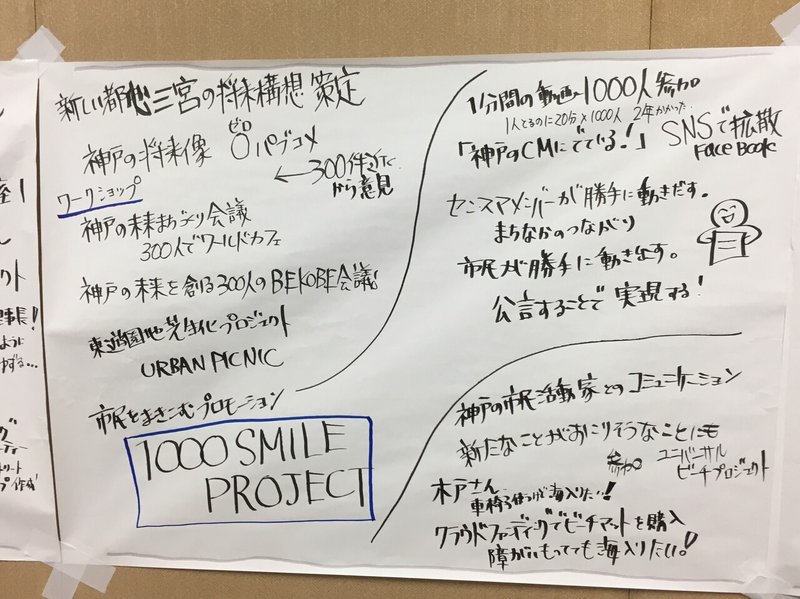 新しい都心三宮の将来構想 策定
神戸の将来像 0パブコメ
ゼロ
← 300件近く
から意見
ワークショップ
神戸の未来まちづくり会議
300人でワールドカフェ
神戸の未来を創る300人のBE KOBE会議
東遊園地芝生化プロジェクト
URBAN PICNIC
市民をまきこむプロモーション
1000 SMILE
PROJECT
1分間の動画 1000人参加
1人とるのに20分×1000人 2年かかった
「神戸のCMにでている!」 SNSで拡散
Face Book
センスマメンバーが勝手に動きだす。
まちなかのつながり
市民が勝手に動き出す。
公言することで実現する!
神戸の市民活動家とのコミュニケーション
新たなことがおこりそうなことにも
参加 ユニバーサル
ビーチプロジェクト
木戸さん
車椅子使うが海入りたい!
クラウドファンディングでビーチマットを購入
障がいもってても海入りたい!
座!
ト
事長!
ように
ト
プ作成!